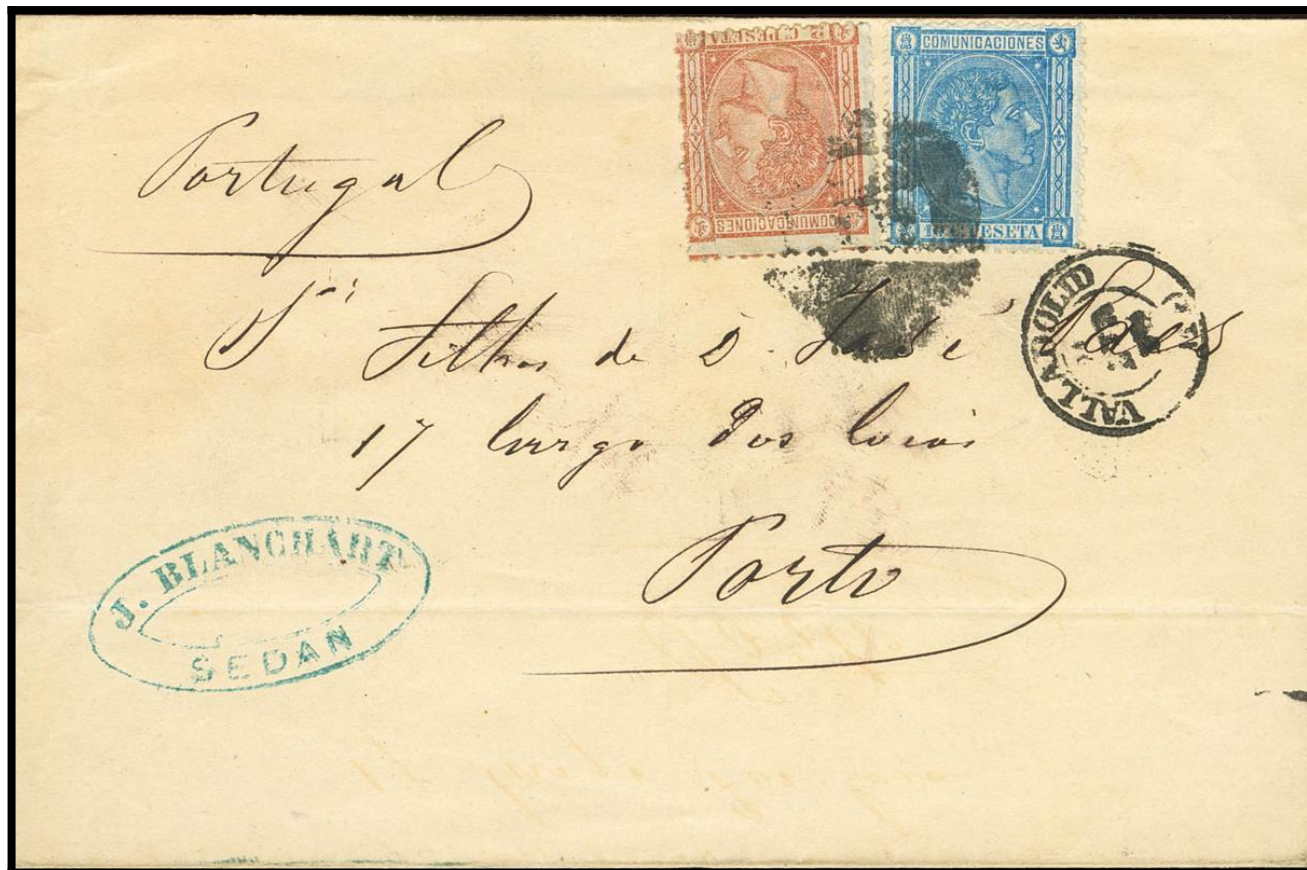 COMUNICACIONES
COMUNICACIONES
PESETA
VALLADOLID
Portugal
Sr Filhos de D. José Paes
17 largo dos Loios
Porto
J. BLANCHART
SEDAN